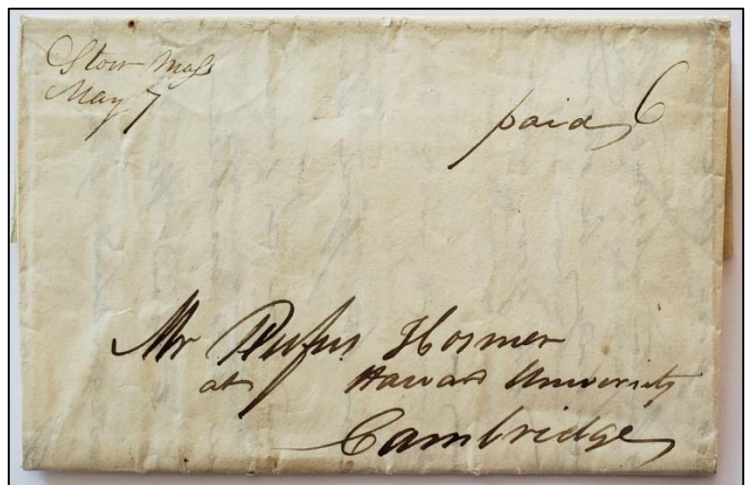 Stow Mass
May 7
paid 6
Mr Rufus Hosmer
at Harvard University
Cambridge